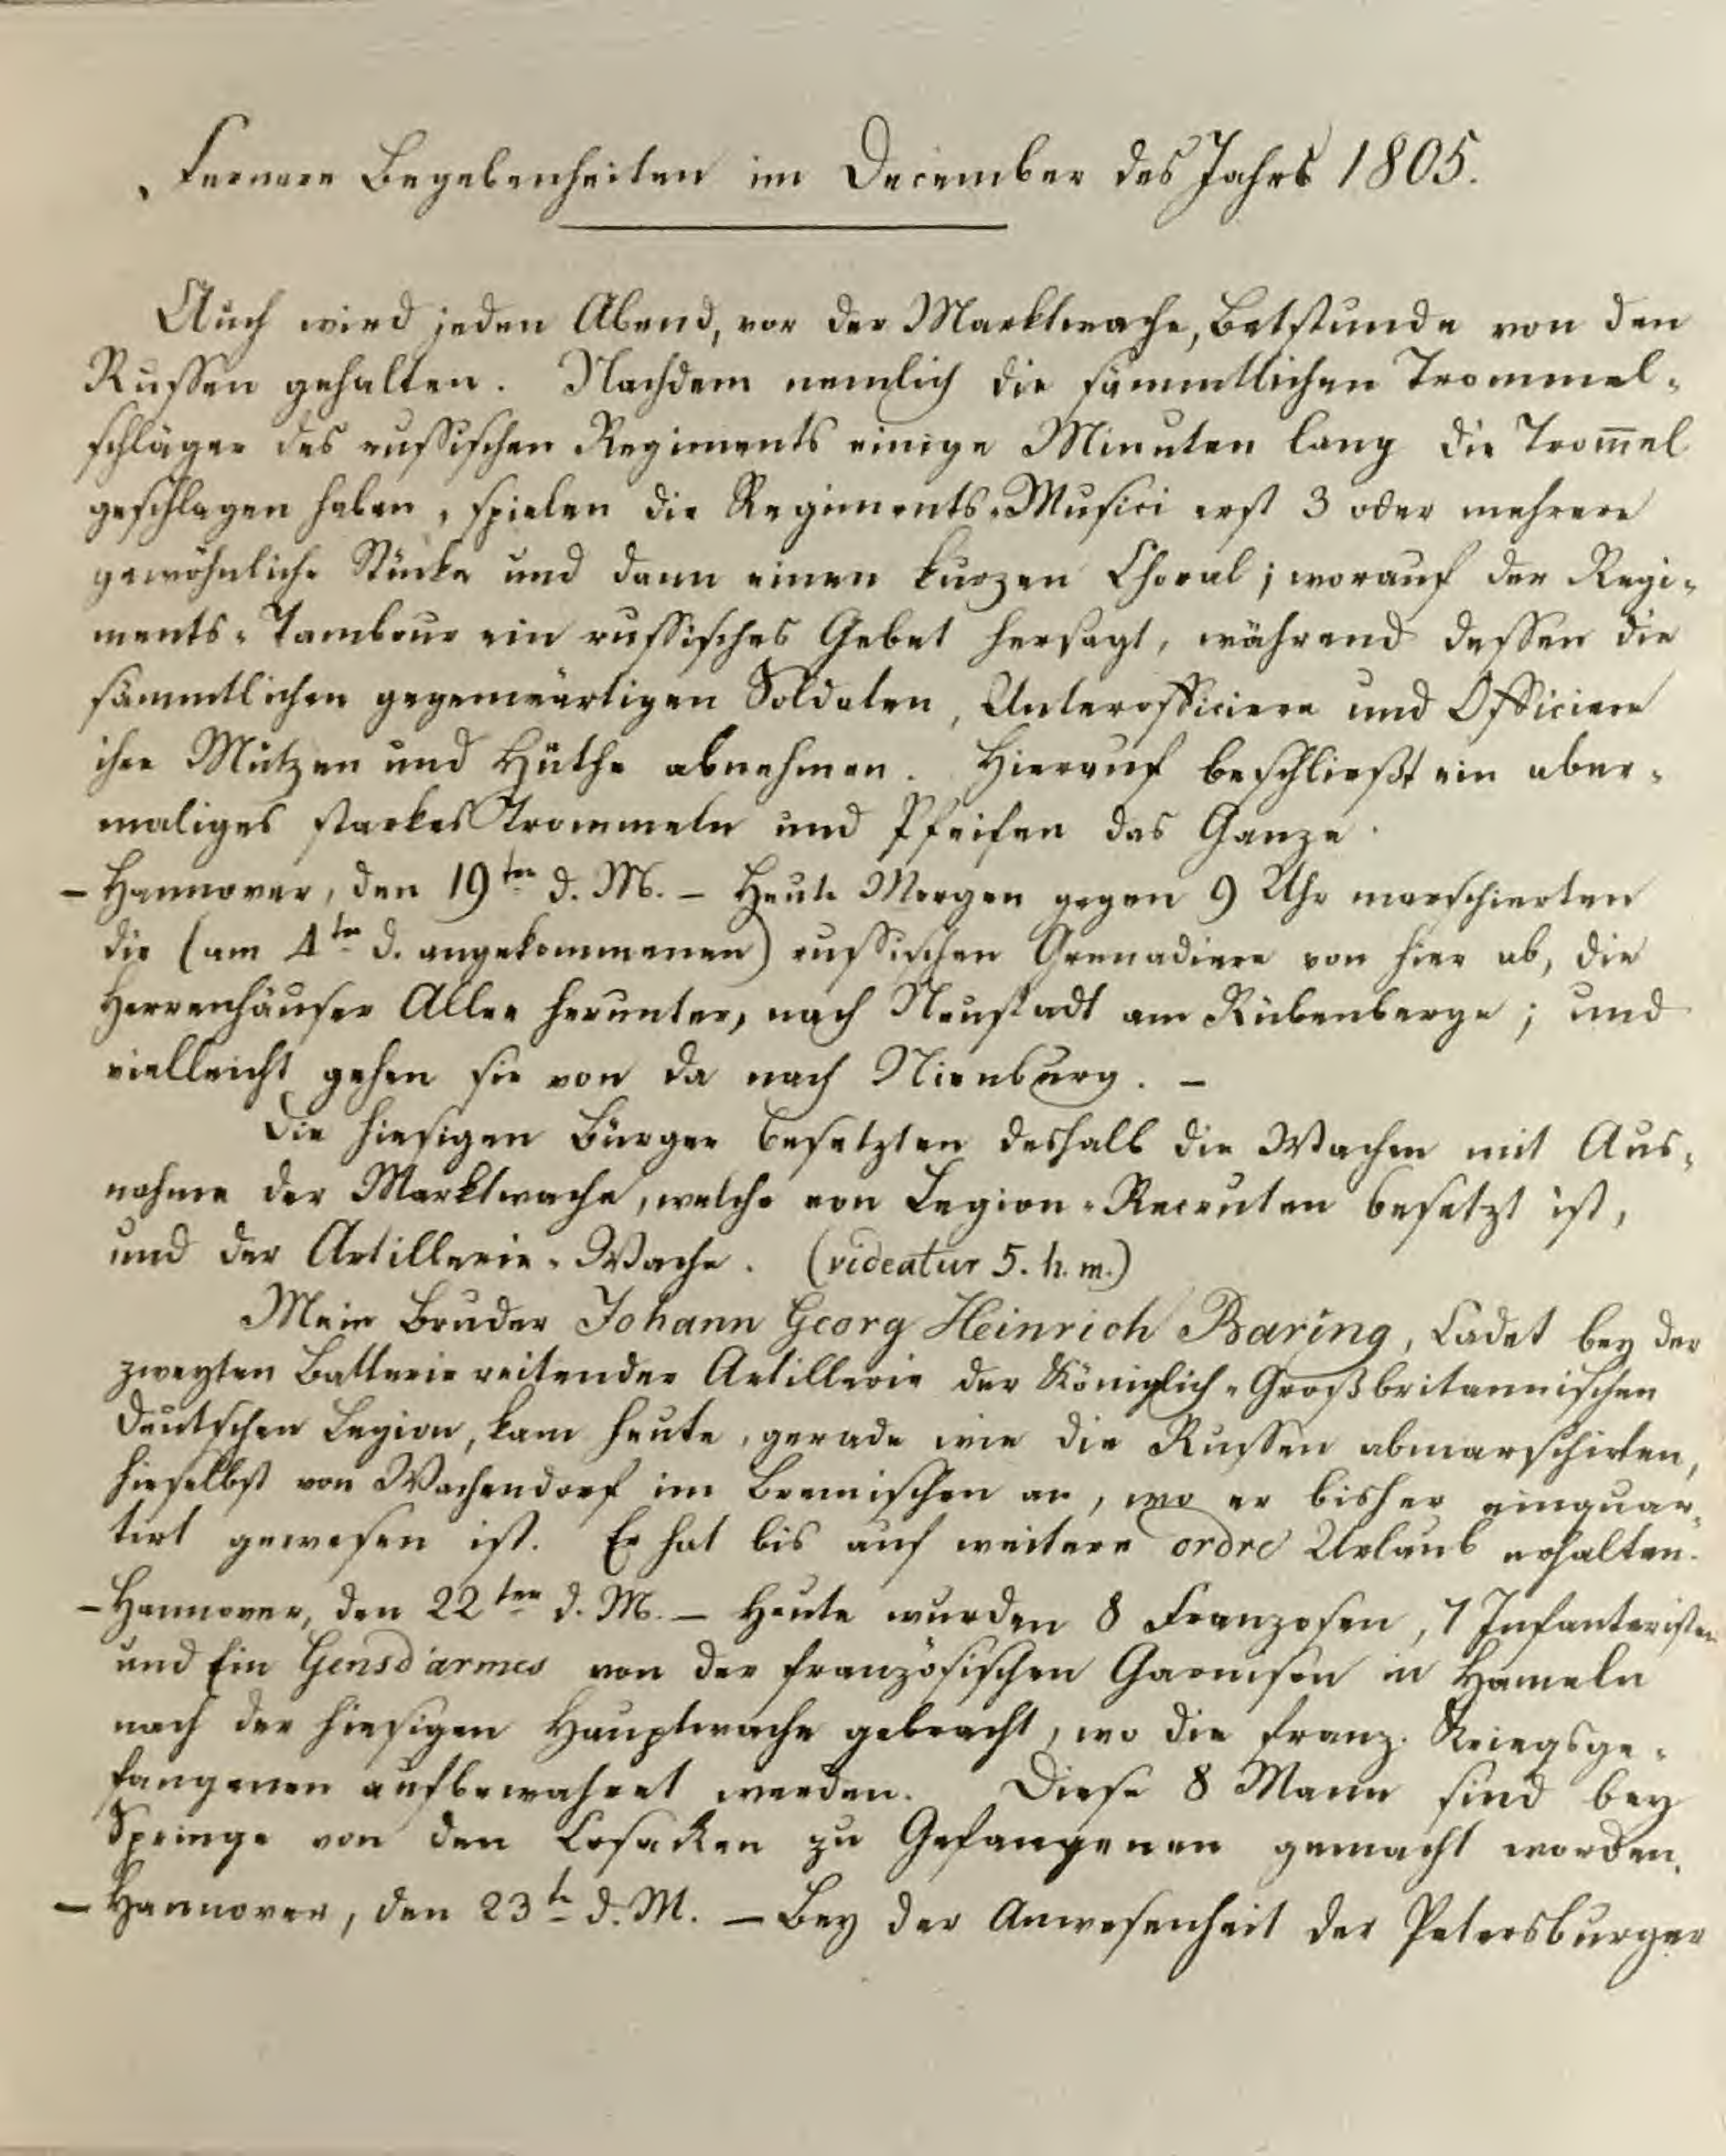 Fernere Begebenheiten im December des Jahrs 1805.
Auch wird jeden Abend, vor der Marktwache, Betstunde von den
Russen gehalten. Nachdem nemlich die sämmtlichen Trommel-
schläger des russischen Regiments einige Minuten lang die Trom̅el
geschlagen haben, spielen die Regiments-Musici erst 3 oder mehrere
gewöhnliche Stücke und dann einen kurzen Choral; worauf der Regi-
ments-Tambour ein russisches Gebet hersagt, während dessen die
sämmtlichen gegenwärtigen Soldaten, Unterofficiere und Officiere
ihre Mützen und Hüthe abnehmen. Hierauf beschließt ein aber-
maliges starkes Trommeln und Pfeifen das Ganze.
– Hannover, den 19ten d. M. – Heute Morgen gegen 9 Uhr marschierten
die (am 4ten d. angekommenen) russischen Grenadiere von hier ab, die
Herrenhäuser Allee herunter, nach Neustadt am Rübenberge; und
vielleicht gehen sie von da nach Nienburg. –
Die hiesigen Bürger besetzten deshalb die Wachen mit Aus-
nahme der Marktwache, welche von Legion-Recruten besetzt ist,
und der Artillerie-Wache. (videatur 5. h. m.)
Mein Bruder Johann Georg Heinrich Baring, Cadet bey der
zweyten Batterie reitender Artillerie der Königlich-Großbritannischen
Deutschen Legion, kam heute, gerade wie die Russen abmarschirten,
hieselbst von Wachendorf im Bremischen an, wo er bisher einquar-
tirt gewesen ist. Er hat bis auf weitere ordre Urlaub erhalten.
– Hannover, den 22ten d. M. – Heute wurden 8 Franzosen, 7 Infanteristen
und Ein Gensd'armes von der französischen Garnison in Hameln
nach der hiesigen Hauptwache gebracht, wo die franz. Kriegsge-
fangenen aufbewahret werden. Diese 8 Mann sind bey
Springe von den Cosacken zu Gefangenen gemacht worden.
– Hannover, den 23ten d. M. – Bey der Anwesenheit der Petersburger